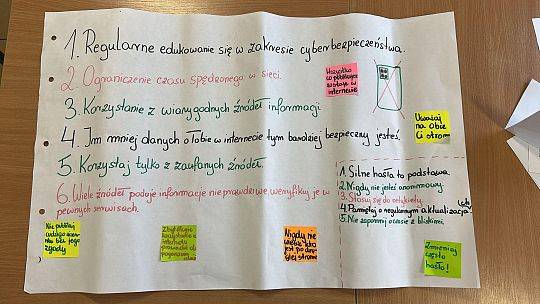 1. Regularne edukowanie się w zakresie cyberbezpieczeństwa.
2. Ograniczenie czasu spędzonego w sieci.
Wszystko
co publikujesz
zostaje w
internecie
3. Korzystanie z wiarygodnych źródeł informacji
Uważaj
na obie
Ci strony
4. Im mniej danych o tobie w internecie tym bardziej bezpieczny jesteś.
5. Korzystaj tylko z zaufanych źródeł.
6. Wiele źródeł podaje informacje nie prawdziwe weryfikuj je w
pewnych serwisach.
1. Silne hasła to podstawa.
2. Nigdy nie jesteś anonimowy.
3. Stosuj się do netykiety.
4. Pamiętaj o regularnym aktualizacja
5. Nie zapomnij o czasie z bliskimi
Nie publikuj
bez jego
zgody
Nigdy nie
wiesz kto
jest po dru-
giej stronie
Zmieniaj
często
hasło!